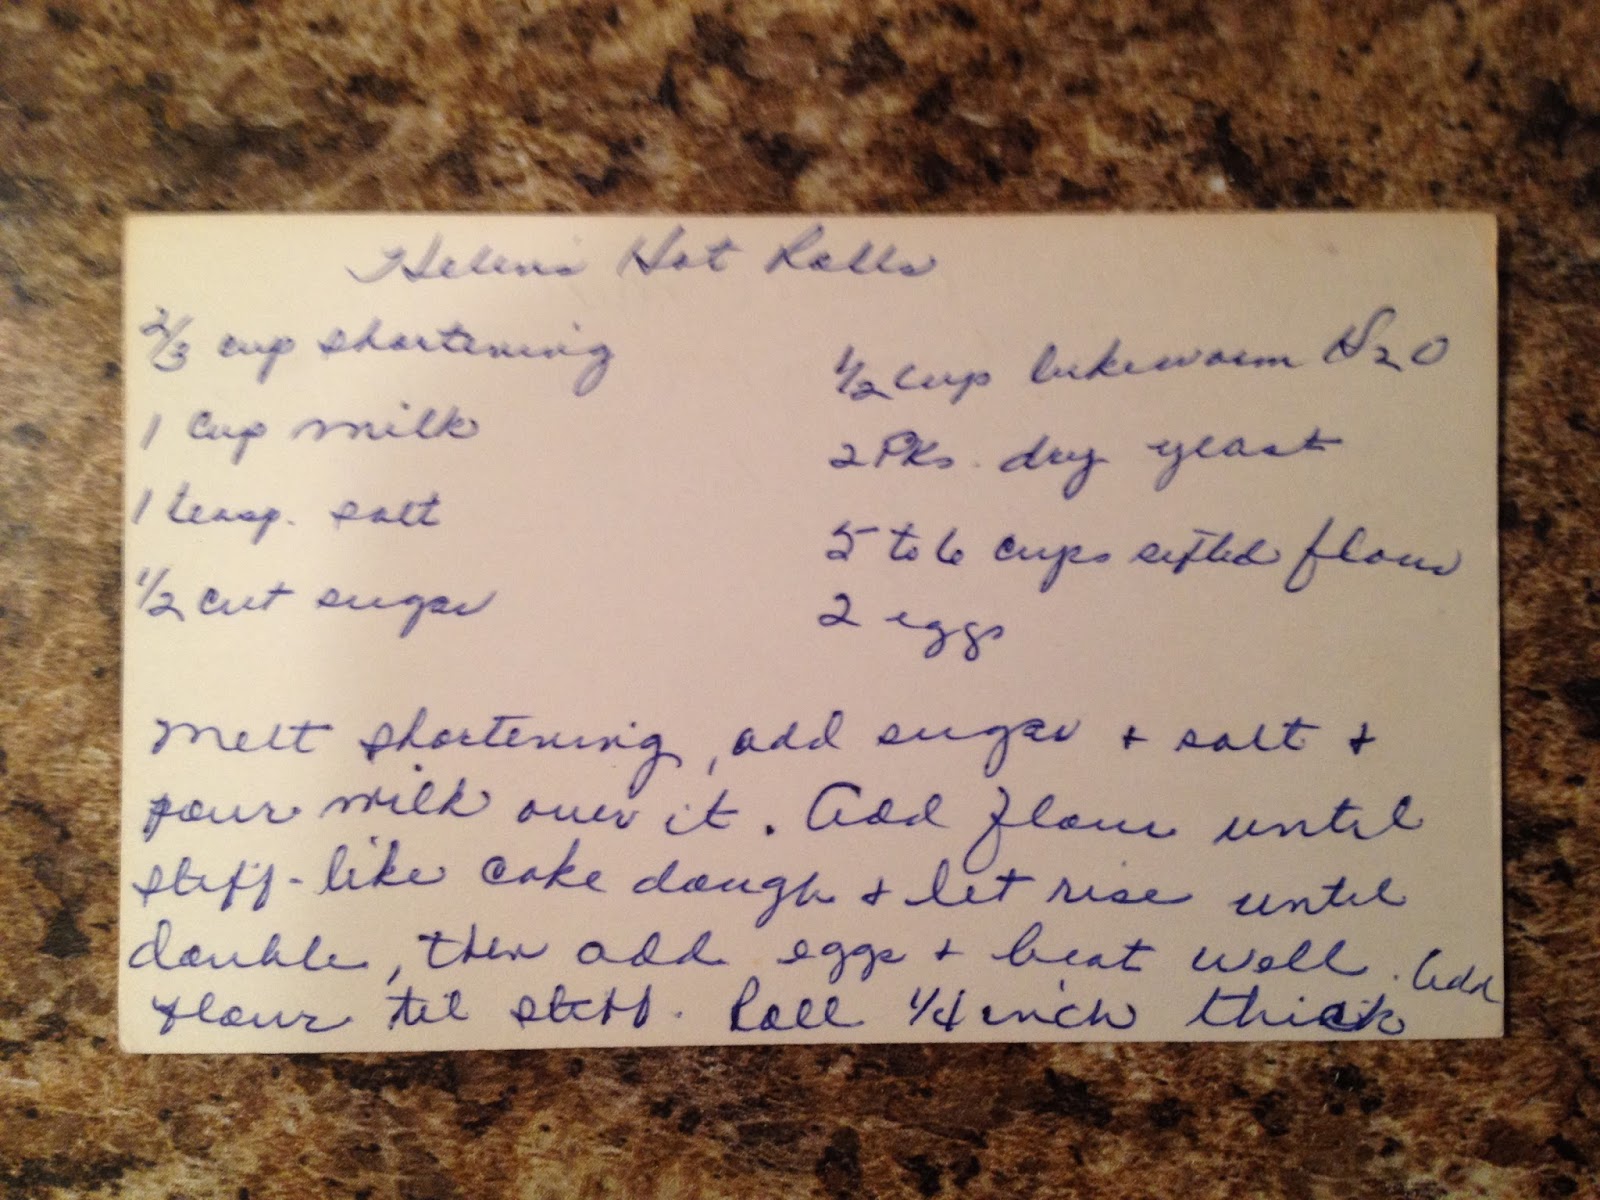 Helen's Hot Rolls
2/3 cup shortening
1 cup milk
1 teasp. salt
1/2 cut sugar
1/2 cup lukewarm H2O
2 Pks. dry yeast
5 to 6 cups sifted flour
2 eggs
Melt shortening, add sugar + salt +
pour milk over it. Add flour until
stiff-like cake dough + let rise until
double, then add eggs + beat well. Add
flour 'til stiff. Roll 1/4 inch thick